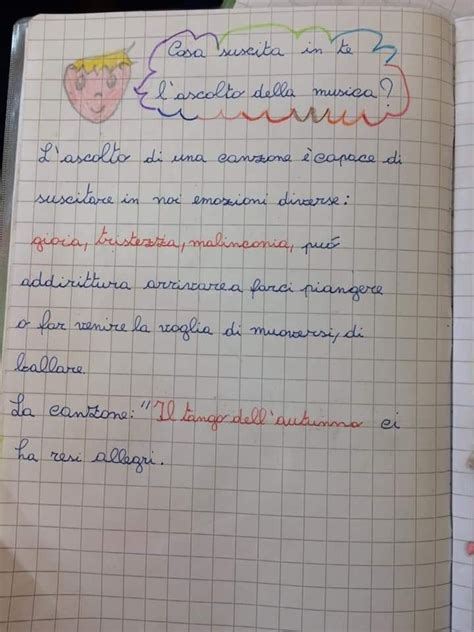 Cosa suscita in te
l'ascolto della musica?
L'ascolto di una canzone è capace di
suscitare in noi emozioni diverse:
gioia, tristezza, malinconia, può
addirittura arrivare a farci piangere
o far venire la voglia di muoversi, di
ballare.
La canzone: "Il tango dell'autunno ci
ha resi allegri.